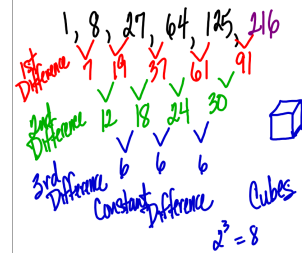 1, 8, 27, 64, 125, 216
1st Difference 7 19 37 61 91
2nd Difference 12 18 24 30
3rd Difference 6 6 6
Constant Difference
Cubes
2³ = 8